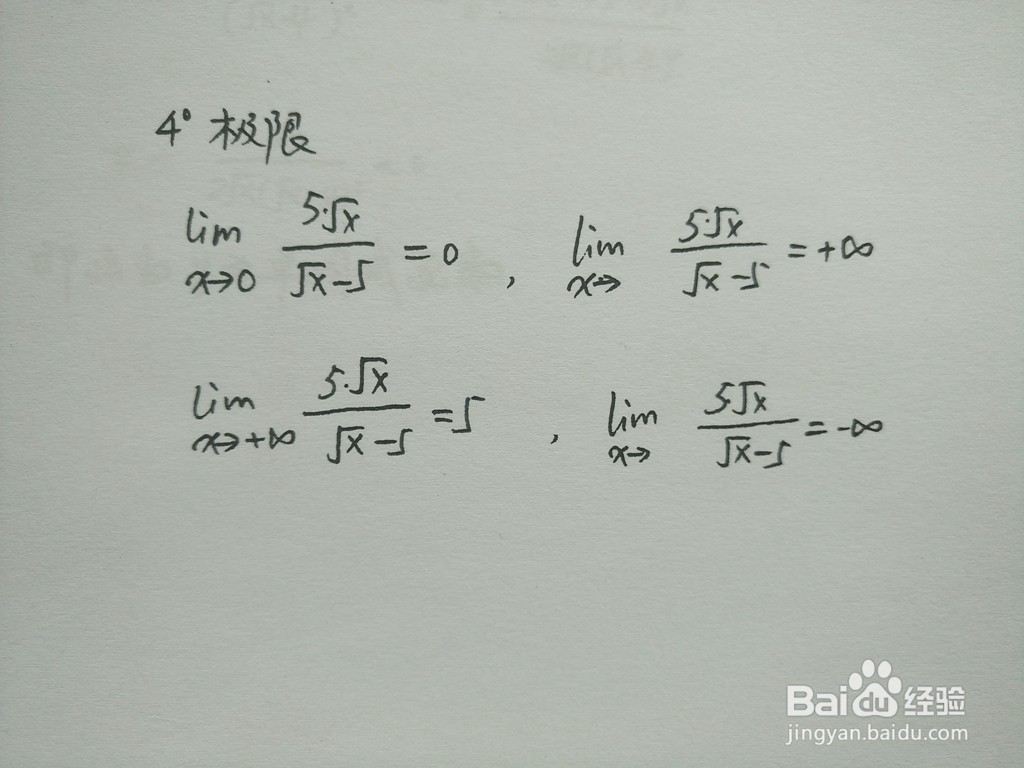 4° 极限
lim x→0 5·√x / √x-5 = 0 , lim x→ 5·√x / √x-5 = +∞
lim x→+∞ 5·√x / √x-5 = 5 , lim x→ 5√x / √x-5 = -∞
Bai du 经验
jingyan.baidu.com